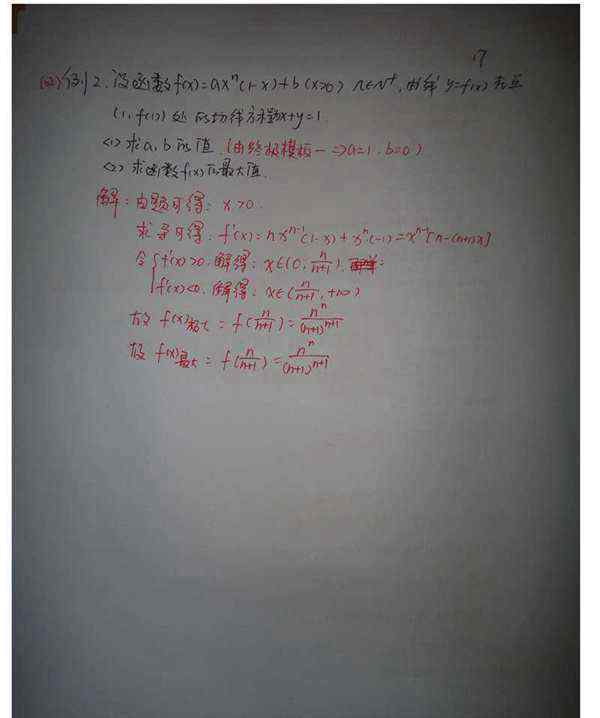 17
(四)例2.设函数f(x)=axⁿ(1-x)+b(x>0) n∈N⁺,曲线y=f(x)在点
(1,f(1))处的切线方程为x+y=1.
<1>求a,b的值.(由终极模板一=>a=1.b=0)
<2>求函数f(x)的最大值.
解:由题可得:x>0.
求导可得:f'(x)=nxⁿ⁻¹(1-x)+xⁿ·(-1)=xⁿ⁻¹[n-(n+1)x]
令{f'(x)>0.解得:x∈(0,n/(n+1)).
f'(x)<0.解得:x∈(n/(n+1),+∞)
故f(x)极大=f(n/(n+1))=nⁿ/(n+1)ⁿ⁺¹
故f(x)最大=f(n/(n+1))=nⁿ/(n+1)ⁿ⁺¹